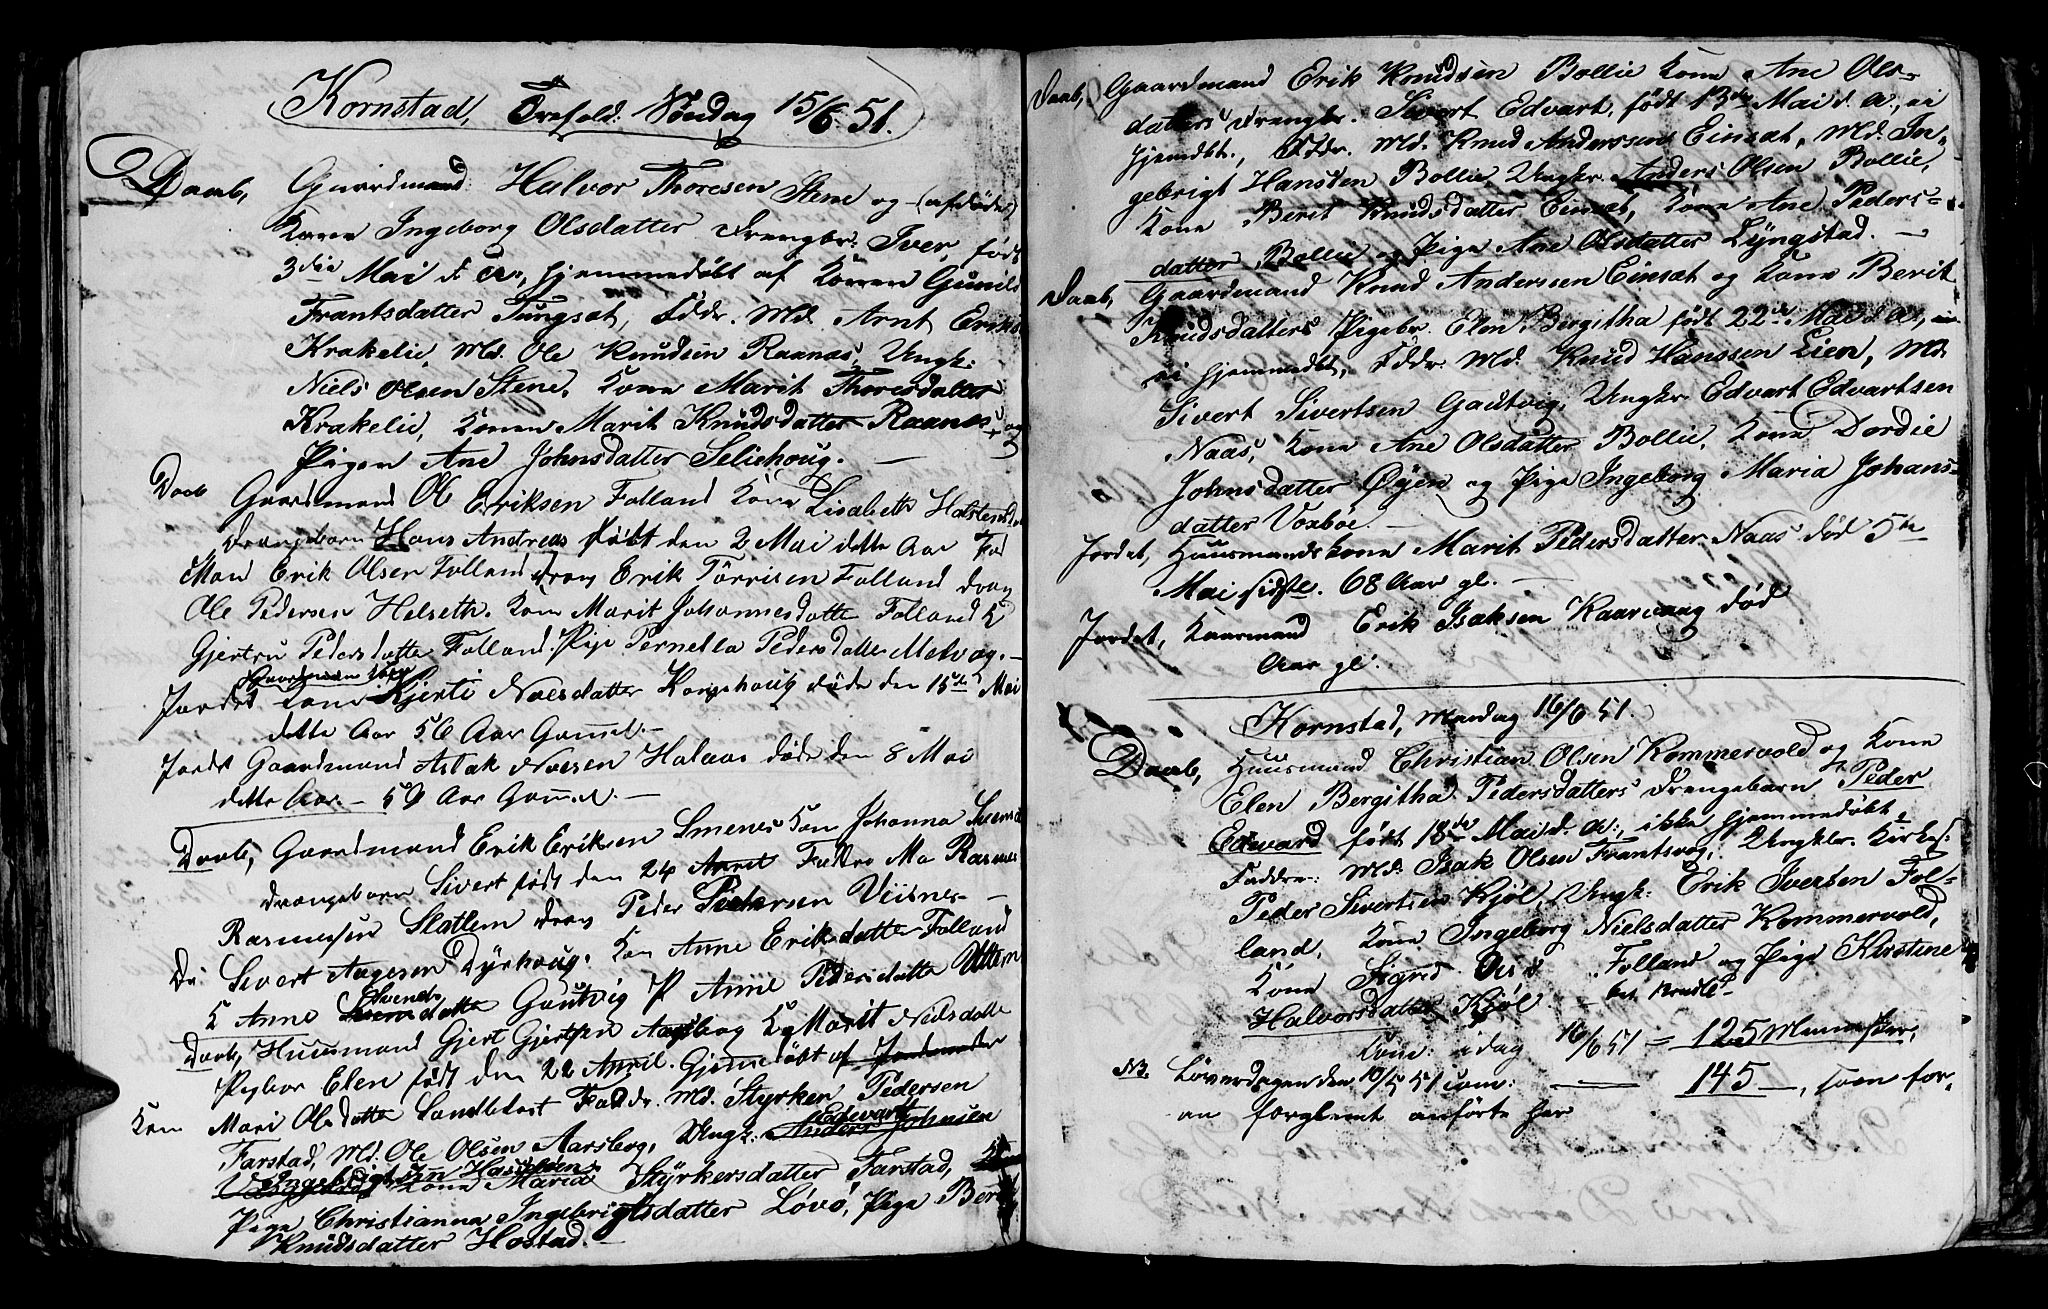 Kornstad, Trefold. Søndag 15/6 51.
Daab, Gaardmand Halvor Thoresen Stene og (afdøde)
Kone Ingeborg Olsdatter Drengbr. Iver, født
3die Mai d. Aa., hjemmedøbt af Konen Gunild
Frantsdatter Tungsat, Fddr. Md. Arnt Eriks
Krakelie, Md. Ole Knudsen Raanæs, Ungk.
Niels Olsen Stene, Kone Marit Thoresdatter
Krakelie, Konen Marit Knudsdatter Raanæs og
Pigen Ane Johnsdatter Seliehoug. —
Daab Gaardmand Ol Eriksen Folland Kone Lisabeth
Drengebarn Hans Andreas født den 2 Mai dette Aar Fad
Man Erik Olsen Folland Dreng Erik Tørrisen Folland Dreng
Ole Pedersen Helseth. Kone Marit Johannesdatte Folland K
Gjertru Pedersdatte Folland. Pige Pernella Pedersdatte Melvog. —
Jordet Kone Kjerti Noesdatter Korsehoug døde den 15de Mai
dette Aar 56 Aar Gamel. —
Jordt Gaardmand Aslak Noesen Halaas døde den 8 Mai
dette Aar. — 59 Aar Gamel. —
Daab, Gaardmand Erik Eriksen Smenes Kone Johanna
Drængebarn Sivert født den 24 April Faddre Ma Rasmus
Rasmussen Slatlem Dreng Peder Pedersen Viisnes —
Di Sivert Aagesen Dyrhoug. Kon Anne Eriksdatte Folland
K Anne Svendsdatte Gautvig P Anne Pedersdatte
Daab, Huusmand Gjert Gjertsen Aarsbog Kg Marit Nilsdatte
Pigbar Elen født den 22 April. Gjemedøbt af Jordemoder
Kon Mari Olsdatte Sandbletet Faddr. Md. Styrker Pedersen
Farstad, Md. Ole Olsen Aarsbog, Ungk. Edevart Anders Johnsen
Kone Maria Styrkersdatter Farstad,
Pige Christianna Ingebrigtsdatter Løvø, Pige Ber
Knudsdatter Hostad. —
Daab, Gaardmand Erik Knudsen Bollie Kone Ane Ols-
datters Drengbr. Sivert Edvart, født 13de Mai d. A., ei
hjemdbt., Fddr. Md. Knud Anderssen Einsat, Md. In-
gebrigt Hanssen Bollie, Ungkr. Anders Olsen Bollie,
Kone Berit Knudsdatter Einsat, Kone Ane Peders-
datter Bollie og Pige Ane Olsdatter Lyngstad. —
Daab, Gaardmand Knud Anderssen Einsat og Kone Berit
Knudsdatters Pigebr. Elen Bergitha født 22de Mai d. A.,
ei hjemmedbt, Fddr Md. Knud Hanssen Lien, Md
Sivert Sivertsen Gautvig, Ungkr. Edvart Edvartsen
Naas, Kone Ane Olsdatter Bollie, Kone Dordie
Johnsdatter Øyen og Pige Ingeborg Maria Johans-
datter Voxbøe. —
Jordet, Huusmandskone Marit Pedersdatter Naas død 5te
Mai sidstl. 68 Aar gl. —
Jordet, Kaarmand Erik Isaksen Kaarvaag død
Aar gl.
Kornstad, Mandag 16/6 51.
Daab, Huusmand Christian Olsen Kommervold og Kone
Elen Bergitha Pedersdatters Drengebarn Peder
Edward født 18de Mai d. A., ikke hjemmedøbt,
Faddre: Md. Isak Olsen Frantsvog, Ungklr. Kirkes.
Peder Sivertsen Kjøl, Ungk: Erik Ivertsen Fol-
land, Kone Ingeborg Nielsdatter Kommervold,
Kone Sigrid Folland og Pige Kirstine
Halvorsdatter Kjøl. —
Kom: idag 16/6 51 = 125 Mennsker,
NB. Løverdagen den 10/5 51 Com: — 145 —, som for-
an forglemt anførte her